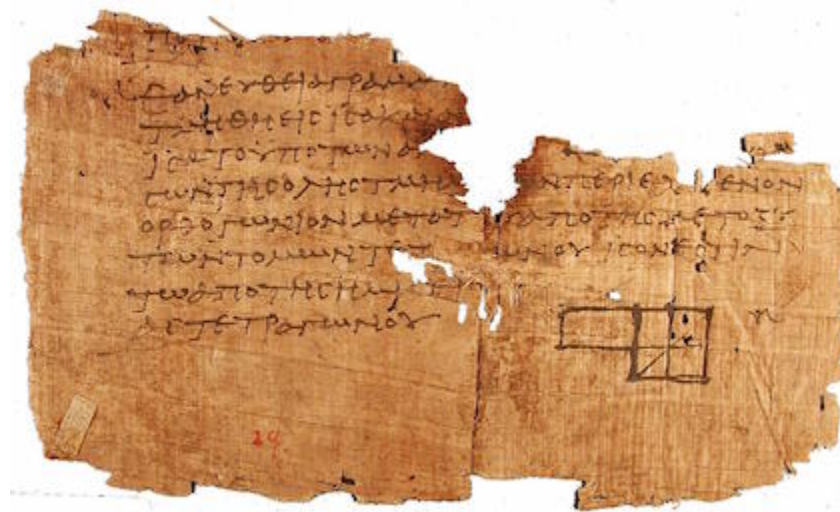 ΕΑΝ ΕΥΘΕΙΑ ΓΡΑΜΜ
ΤΜΗΘΗ ΕΙC ΙCΑ ΚΑΙ ΑΝ
ΙCΑ ΤΟ ΥΠΟ ΤΩΝ Α
CΩΝ ΤΗC ΟΛΗC ΤΜΗΜ ΩΝ ΠΕΡΙΕΧ ΜΕΝΟΝ
ΟΡΘΟΓΩΝΙΟΝ ΜΕΤΑ ΤΟΥ ΑΠΟ ΤΗC ΜΕΤΟΞΥ
ΤΩΝ ΤΟΜΩΝ ΤΕΤ ΩΝΟΥ ΙCΟΝ ΕCΤΙΝ
ΤΩ ΑΠΟ ΤΗC ΗΜΙCΕΙ
ΑC ΤΕΤΡΑΓΩΝΟΥ
29